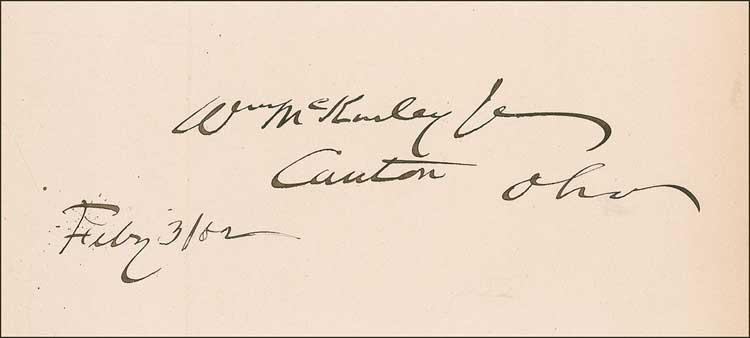 Wm McKinley Jr
Canton Ohio
Feby 3/82